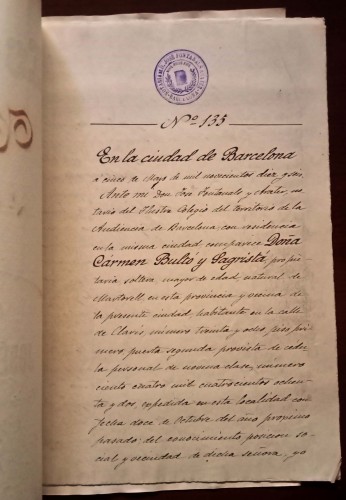 Nº 135
En la ciudad de Barcelona
á cinco de Mayo de mil novecientos diez y seis.
Ante mi Don José Fontanals y Arater, no-
tario del Ilustre Colegio del territorio de la
Audiencia de Barcelona, con residencia
en la misma ciudad, comparece Doña
Carmen Bulto y Sagrista, propie-
taria, soltera, mayor de edad, natural de
Martorell, en esta provincia y vecina de
la presente ciudad, habitante en la calle
de Claris, número treinta y ocho, piso pri-
mero, puerta segunda, provista de cédu-
la personal de novena clase, número
ciento cuatro mil cuatrocientos ochen-
ta y dos, expedida en esta localidad con
fecha doce de Octubre del año próximo
pasado; del conocimiento, posición so-
cial y vecindad de dicha señora, yo